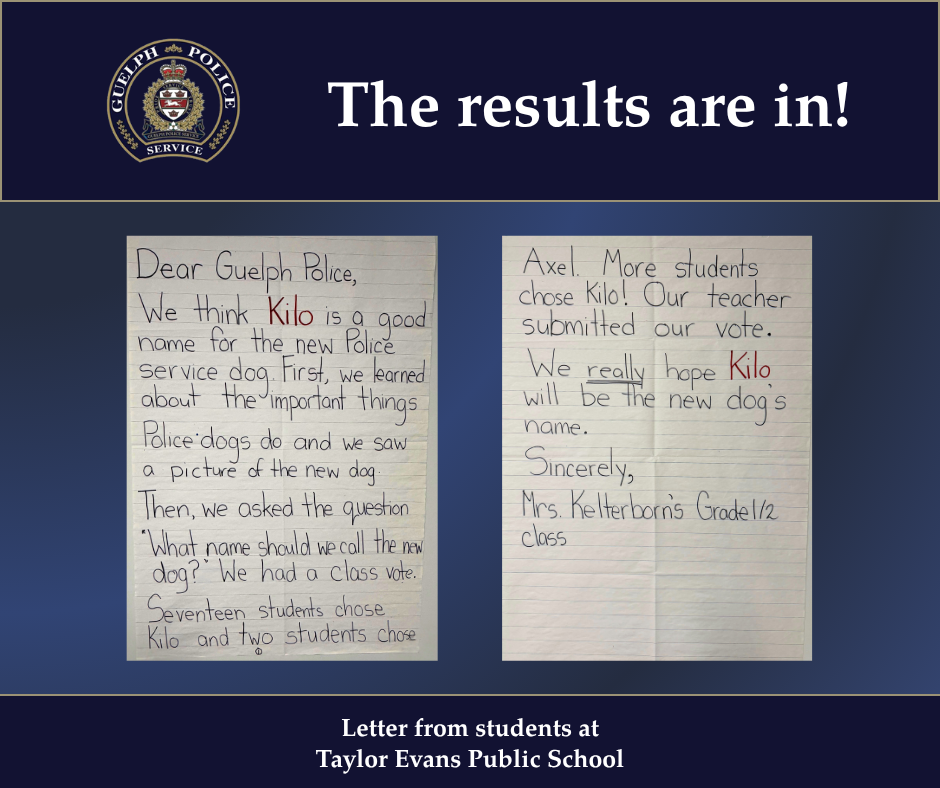 GUELPH POLICE
SERVICE
The results are in!
Dear Guelph Police,
We think Kilo is a good
name for the new Police
service dog. First, we learned
about the important things
Police dogs do and we saw
a picture of the new dog.
Then, we asked the question
"What name should we call the new
dog?" We had a class vote.
Seventeen students chose
Kilo and two students chose
Axel. More students
chose Kilo! Our teacher
submitted our vote.
We really hope Kilo
will be the new dog's
name.
Sincerely,
Mrs. Kelterborn's Grade 1/2
class
Letter from students at
Taylor Evans Public School